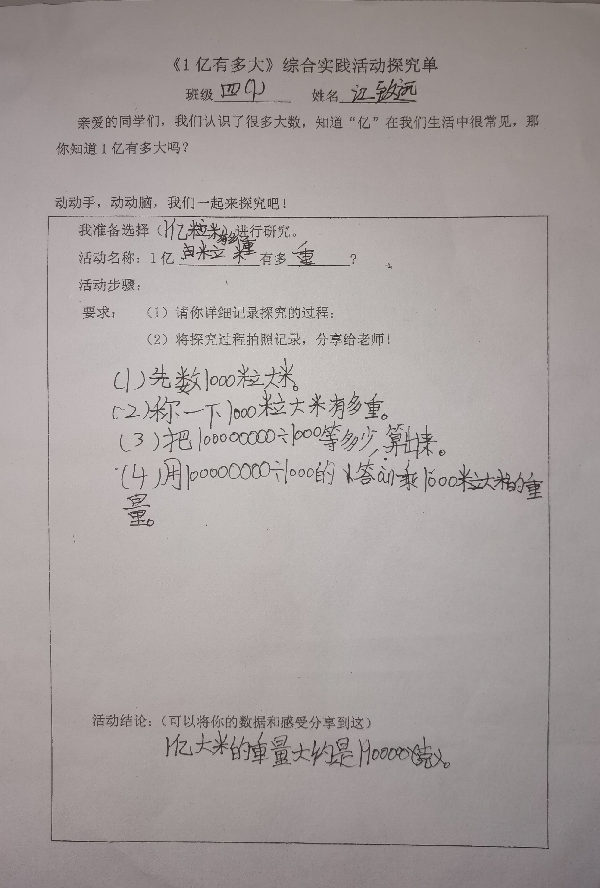 《1亿有多大》综合实践活动探究单
班级 四(1) 姓名 江致远
亲爱的同学们，我们认识了很多大数，知道“亿”在我们生活中很常见，那
你知道1亿有多大吗？
动动手，动动脑，我们一起来探究吧！
我准备选择（1亿粒米有多重）进行研究。
活动名称：1亿 粒米 有多 重 ？
活动步骤：
要求：（1）请你详细记录探究的过程；
（2）将探究过程拍照记录，分享给老师！
(1)先数1000粒大米。
(2)称一下1000粒大米有多重。
(3)把100000000÷1000等多少，算出来。
(4)用100000000÷1000的答案乘1000粒大米的重
量。
活动结论：（可以将你的数据和感受分享到这）
1亿大米的重量大约是1900000(克)。